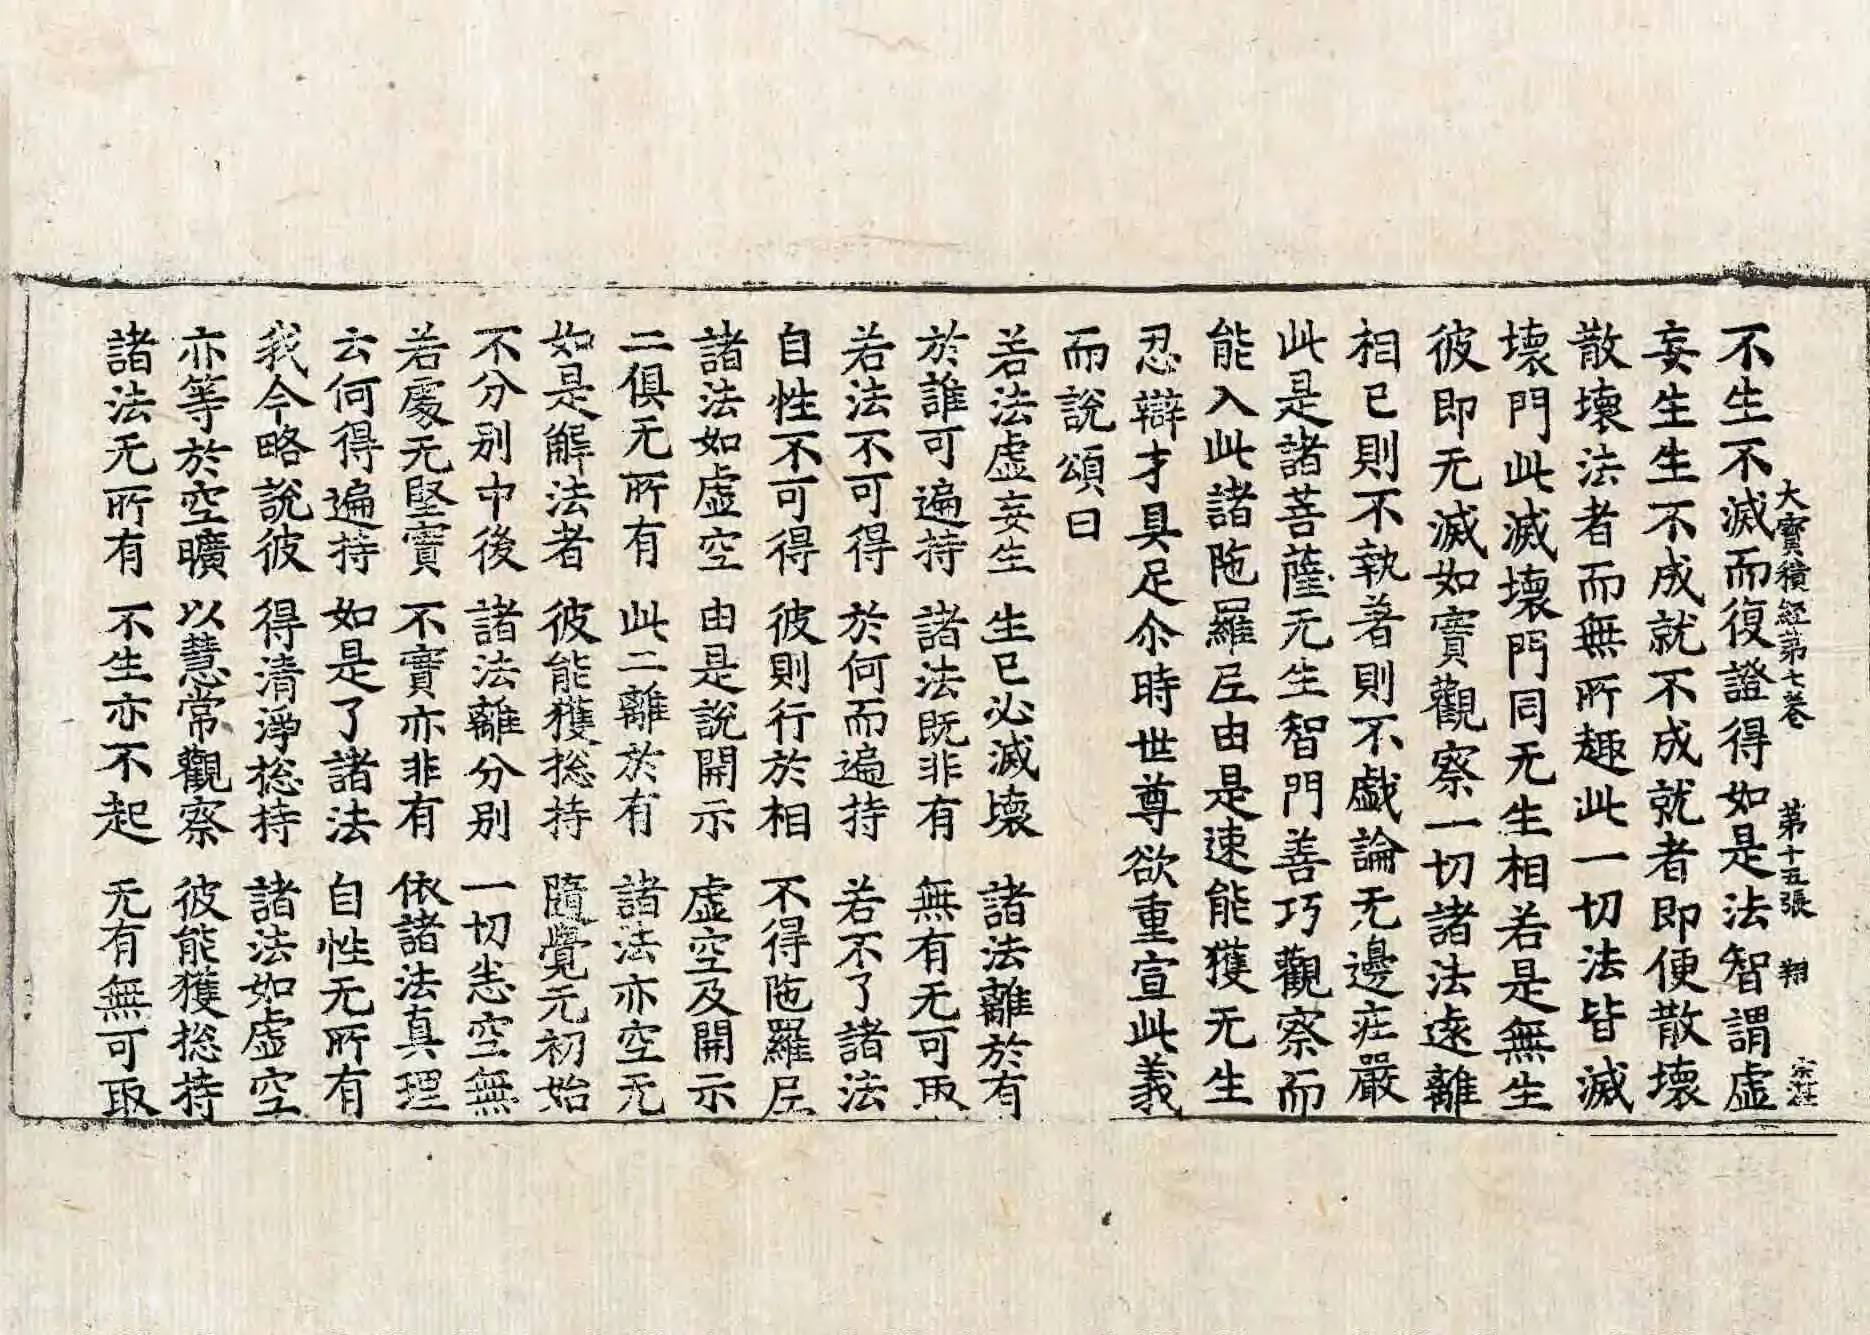 大寶積經第七卷 第十五張 翔
不生不滅而復證得如是法智謂虛
妄生生不成就不成就者即便散壞
散壞法者而無所趣此一切法皆滅
壞門此滅壞門同无生相若是無生
彼即无滅如實觀察一切諸法遠離
相已則不執著則不戱論无邊庄嚴
此是諸菩薩无生智門善巧觀察而
能入此諸陁羅尼由是速能獲无生
忍辯才具足尒時世尊欲重宣此義
而說頌曰
若法虛妄生 生已必滅壞 諸法離於有
於誰可遍持 諸法既非有 無有无可取
若法不可得 於何而遍持 若不了諸法
自性不可得 彼則行於相 不得陁羅尼
諸法如虛空 由是說開示 虛空及開示
二俱无所有 此二離於有 諸法亦空无
如是解法者 彼能獲揔持 隨覺元初始
不分別中後 諸法離分別 一切悉空無
若處无堅實 不實亦非有 依諸法真理
云何得遍持 如是了諸法 自性无所有
我今略說彼 得清淨揔持 諸法如虛空
亦等於空曠 以慧常觀察 彼能獲揔持
諸法无所有 不生亦不起 无有無可取